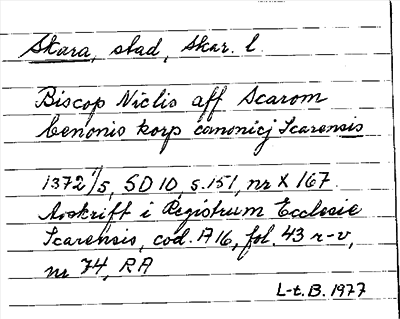 Skara, stad, Skar. l.
Biscop Niclis aff Scarom
benonis korp canonicj Scarensis
1372 1/5, SD 10, s. 151, nr X 167
Avskrift i Registrum Ecclesie
Scarensis, cod. A 16, fol. 43 r-v,
nr 74, RA
L-t. B. 1977